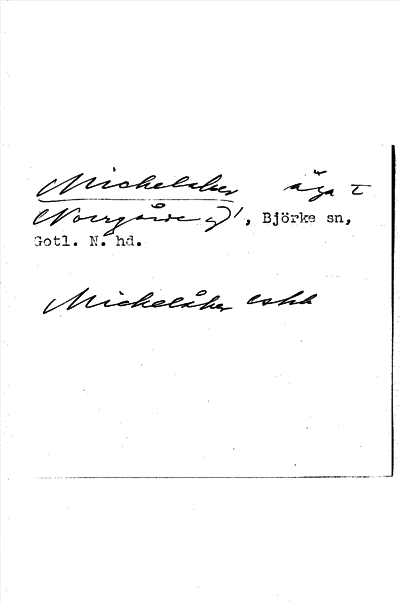 Michelaker äga t
Norrgårde 1, Björke sn,
Gotl. N. hd.
Michelåker